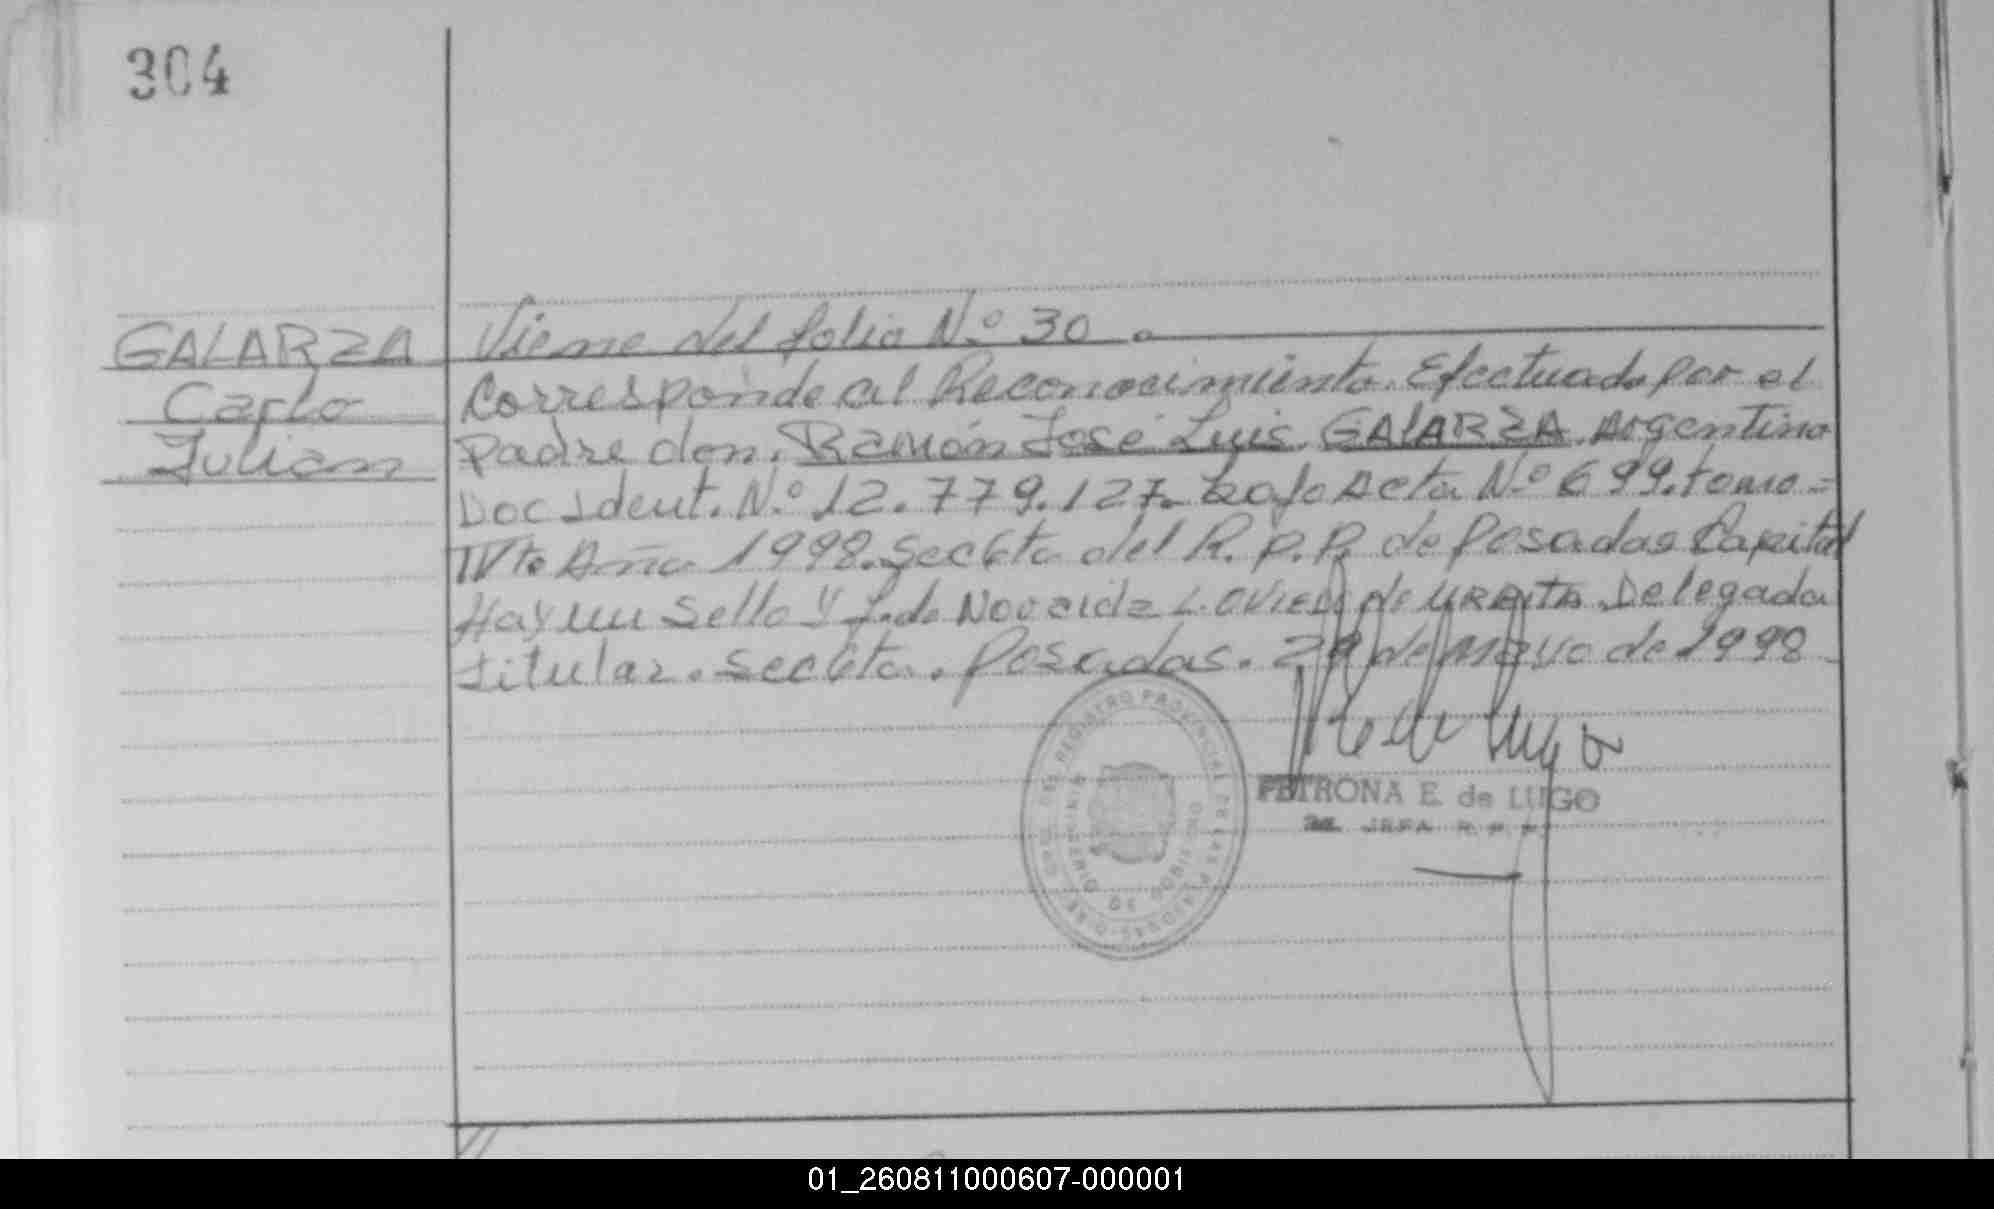 304
GALARZA
Carlo
Julian
Viene del folio N.º 30.
Corresponde al Reconocimiento. Efectuado por el
padre don. Ramón José Luis. GALARZA. Argentino
Doc Ident. N.º 12.779.127. bajo Acta Nº 699. tomo =
IVto Año 1998. Sec 6ta del R.P.P. de Posadas Capital
Hay un Sello y f.do L. OVIEDO de URBITA Delegada
titular. Sec 6ta. Posadas. 29 de Mayo de 1998
de Lugo
REGISTRO PROVINCIAL DE LAS PERSONAS
MINISTERIO DE GOBIERNO
PETRONA E. de LUGO
JEFA R. P.
01_260811000607-000001